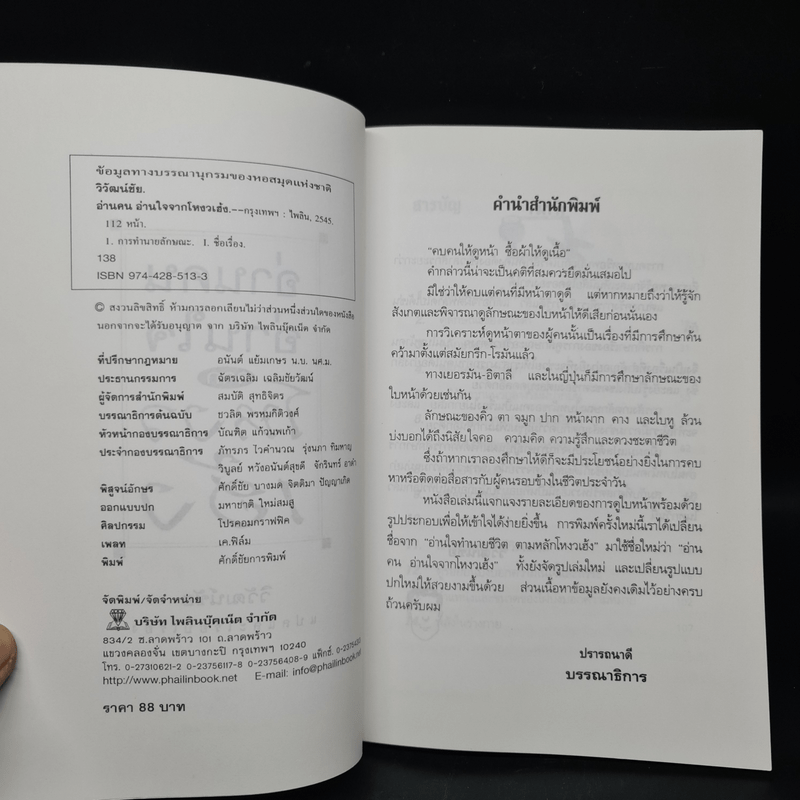 ข้อมูลทางบรรณานุกรมของหอสมุดแห่งชาติ
วิวัฒน์ชัย.
อ่านคน อ่านใจจากโหงวเฮ้ง.--กรุงเทพฯ : ไพลิน, 2545.
112 หน้า.
1. การทำนายลักษณะ. I. ชื่อเรื่อง.
138
ISBN 974-428-513-3
© สงวนลิขสิทธิ์ ห้ามการลอกเลียนไม่ว่าส่วนหนึ่งส่วนใดของหนังสือ
นอกจากจะได้รับอนุญาต จาก บริษัท ไพลินบุ๊คเน็ต จำกัด
ที่ปรึกษากฎหมาย อนันต์ แย้มเกษร น.บ. นศ.ม.
ประธานกรรมการ ฉัตรเฉลิม เฉลิมชัยวัฒน์
ผู้จัดการสำนักพิมพ์ สมบัติ สุทธิจิตร
บรรณาธิการต้นฉบับ ชวลิต พรหมกิติวงค์
หัวหน้ากองบรรณาธิการ บัณฑิต แก้วนพเก้า
ประจำกองบรรณาธิการ ภัทรภร ไวคำนวณ รุ่งนภา ทิมหาญ
วิบูลย์ หวังอนันต์สุขดี จักรินทร์
พิสูจน์อักษร ศักดิ์ชัย บางมด จิตติมา ปัญญาเกิด
ออกแบบปก มหาชาติ ใหม่สมสู
ศิลปกรรม โปรคอมกราฟฟิค
เพลท เค.ฟิล์ม
พิมพ์ ศักดิ์ชัยการพิมพ์
จัดพิมพ์/จัดจำหน่าย
บริษัท ไพลินบุ๊คเน็ต จำกัด
834/2 ซ.ลาดพร้าว 101 ถ.ลาดพร้าว
แขวงคลองจั่น เขตบางกะปิ กรุงเทพฯ 10240
โทร. 0-27310621-2 0-23756117-8 0-23756408-9 แฟ็กซ์.
http://www.phailinbook.net E-mail: info@phailinbook.net
ราคา 88 บาท
คำนำสำนักพิมพ์
"คบคนให้ดูหน้า ซื้อผ้าให้ดูเนื้อ"
คำกล่าวนี้น่าจะเป็นคติที่สมควรยึดมั่นเสมอไป
มิใช่ว่าให้คบแต่คนที่มีหน้าตาดูดี แต่หากหมายถึงว่าให้รู้จัก
สังเกตและพิจารณาดูลักษณะของใบหน้าให้ดีเสียก่อนนั่นเอง
การวิเคราะห์ดูหน้าตาของผู้คนนั้นเป็นเรื่องที่มีการศึกษาค้น
คว้ามาตั้งแต่สมัยกรีก-โรมันแล้ว
ทางเยอรมัน-อิตาลี และในญี่ปุ่นก็มีการศึกษาลักษณะของ
ใบหน้าด้วยเช่นกัน
ลักษณะของคิ้ว ตา จมูก ปาก หน้าผาก คาง และใบหู ล้วน
บ่งบอกได้ถึงนิสัยใจคอ ความคิด ความรู้สึกและดวงชะตาชีวิต
ซึ่งถ้าหากเราลองศึกษาให้ดีก็จะมีประโยชน์อย่างยิ่งในการคบ
หาหรือติดต่อสื่อสารกับผู้คนรอบข้างในชีวิตประจำวัน
หนังสือเล่มนี้แจกแจงรายละเอียดของการดูใบหน้าพร้อมด้วย
รูปประกอบเพื่อให้เข้าใจได้ง่ายยิ่งขึ้น การพิมพ์ครั้งใหม่นี้เราได้เปลี่ยน
ชื่อจาก "อ่านใจทำนายชีวิต ตามหลักโหงวเฮ้ง" มาใช้ชื่อใหม่ว่า "อ่าน
คน อ่านใจจากโหงวเฮ้ง" ทั้งยังจัดรูปเล่มใหม่ และเปลี่ยนรูปแบบ
ปกใหม่ให้สวยงามขึ้นด้วย ส่วนเนื้อหาข้อมูลยังคงเดิมไว้อย่างครบ
ถ้วนครับผม
ปรารถนาดี
บรรณาธิการ